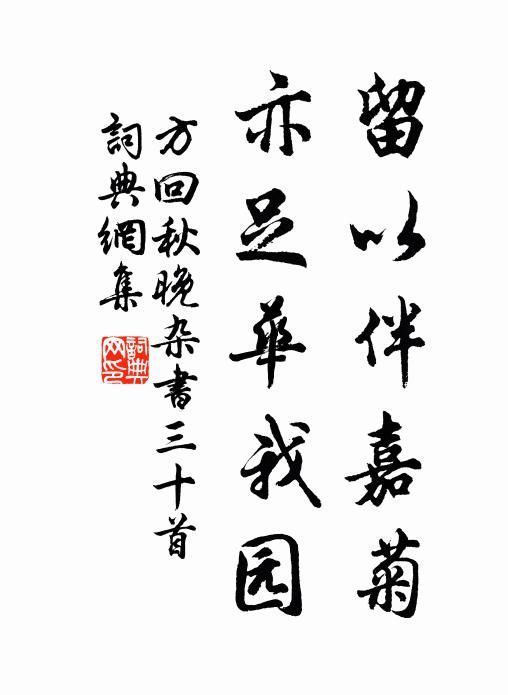 留以伴嘉菊
亦足華我园
方回秋晚杂書三十首
詞典網集
詞典網印